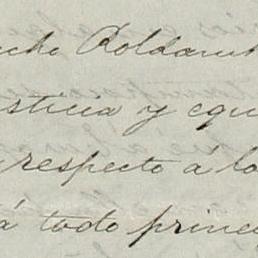 ucho Roldan
sticia y equi
respecto á lo
á todo princi